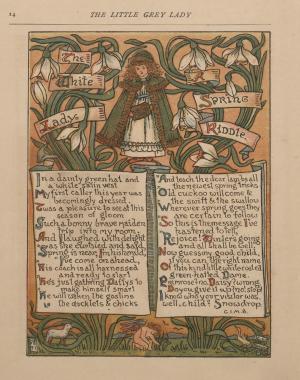 14
THE LITTLE GREY LADY
The
White
Lady
A
Spring
Riddle
In a dainty green hat and
a white satin vest
My first caller this year was
becomingly dressed
Twas a pleasure to see at this
season of gloom
Such a bonny brave maiden
trip into my room
And laughed with delight
as she curtsied and said
Spring is near I'm his maid
I've come on ahead
His coach is all harnessed
and ready to start
He's just gathering Daffys to
make himself smart
He will waken the goslins
the ducklets & chicks
And teach the dear lambs all
the newest spring tricks
And cuckoo will come to
the swift & the swallow
Wherever spring goes they
are certain to follow
So this is the message I've
Rejoice! Winter's going
and all shall be glad
Now guess my good child
if you can the right name
Of this kind little
green-hatted Dame
Primrose? no. Daisy? wrong.
Do you give it up? no, stop
I know who your visitor was,
well, child? Snowdrop.
C.I.M.B.